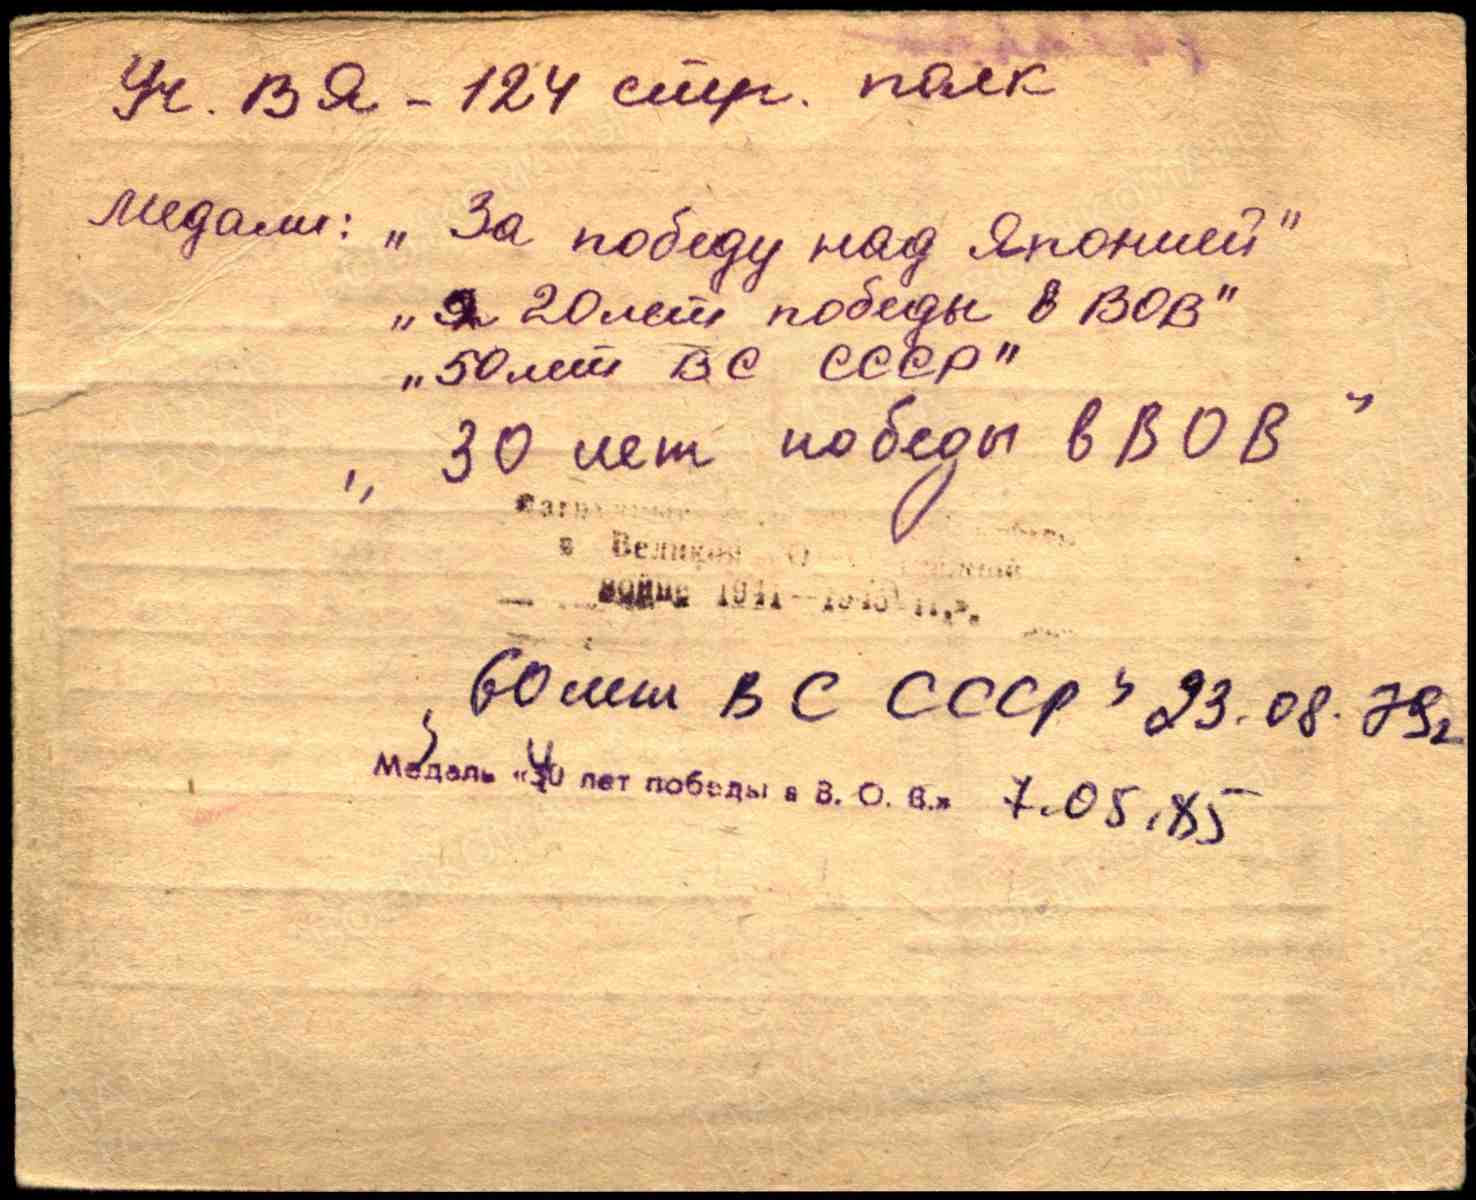 Уч. ВЯ - 124 стр. полк
Медали: „За победу над Японией"
„20 лет победы в ВОВ"
„50 лет ВС СССР"
„30 лет победы в ВОВ"
в Великой
войне 1941—1945 гг.».
„60 лет ВС СССР" 23.08.79г
Медаль «40 лет победы в В. О. В.» 7.05.85